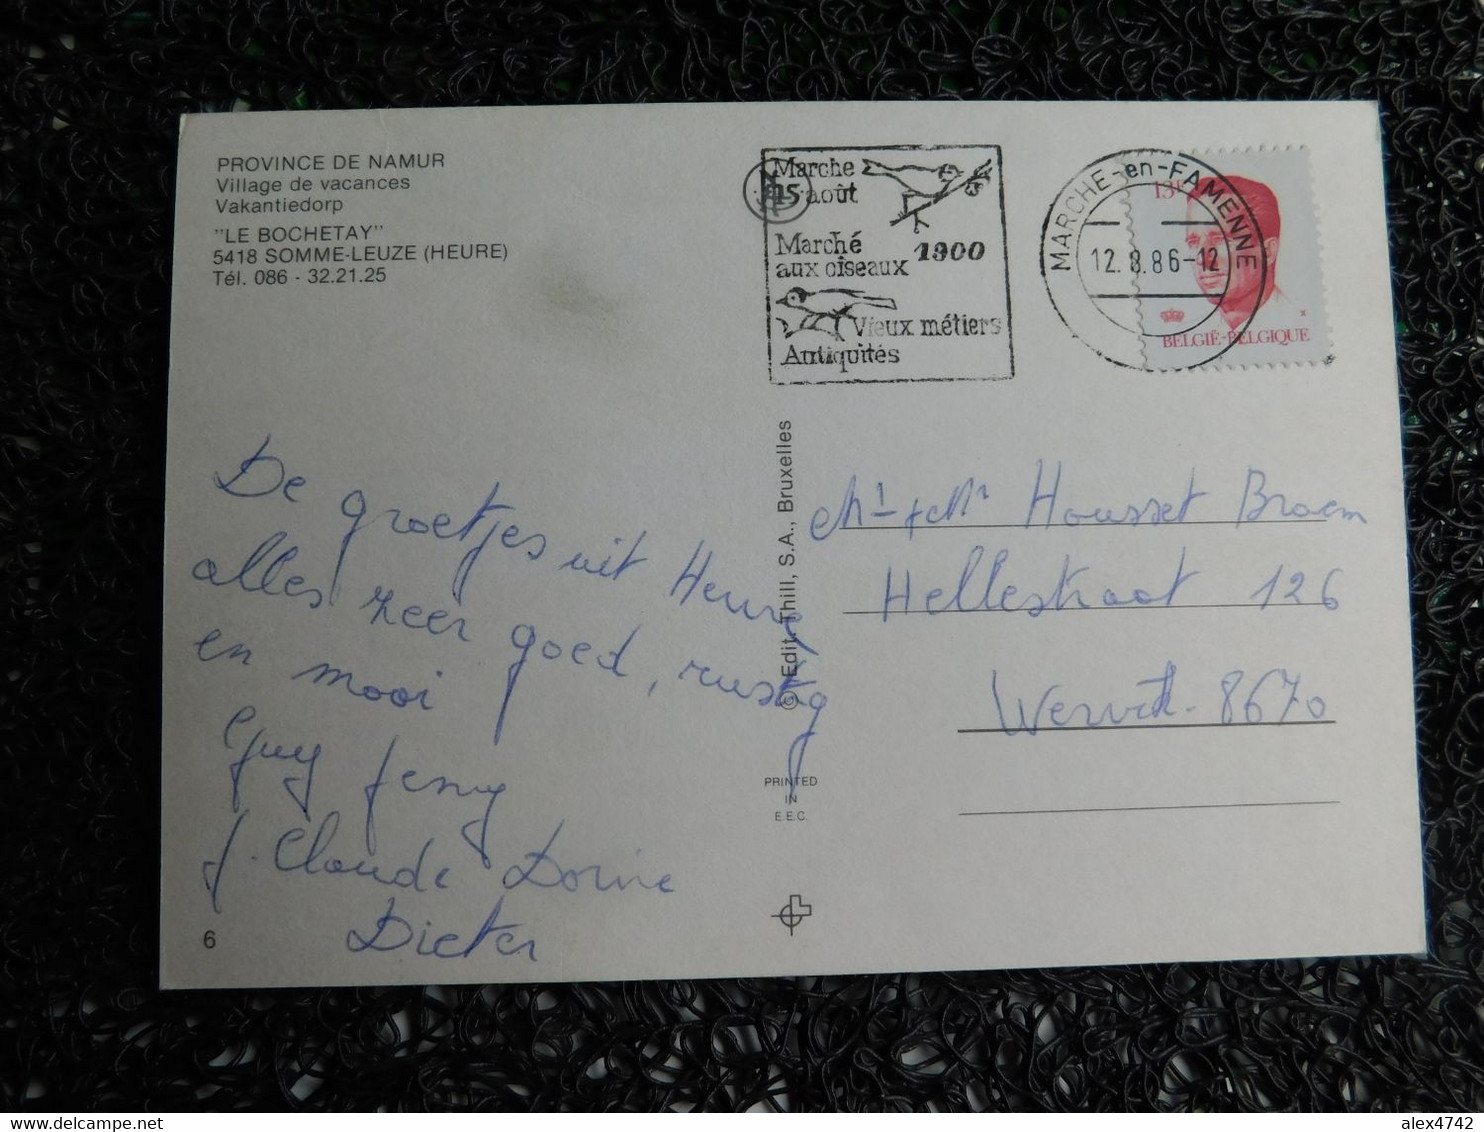 PROVINCE DE NAMUR
Village de vacances
Vakantiedorp
"LE BOCHETAY"
5418 SOMME-LEUZE (HEURE)
Tél. 086 - 32.21.25
Marche
15 août
Marché 1900
aux oiseaux
Vieux métiers
Antiquités
MARCHE-en-FAMENNE
12.8.86-12
13F
BELGIË-BELGIQUE
De groetjes uit Heure
alles zeer goed, rustig
en mooi
Guy Jenny
J. Claude Dorine
Dieter
6
© Edit. Thill, S.A., Bruxelles
PRINTED
IN
E.E.C.
Housset Braem
Hellestraat 126
Wervik - 8670
alex4742